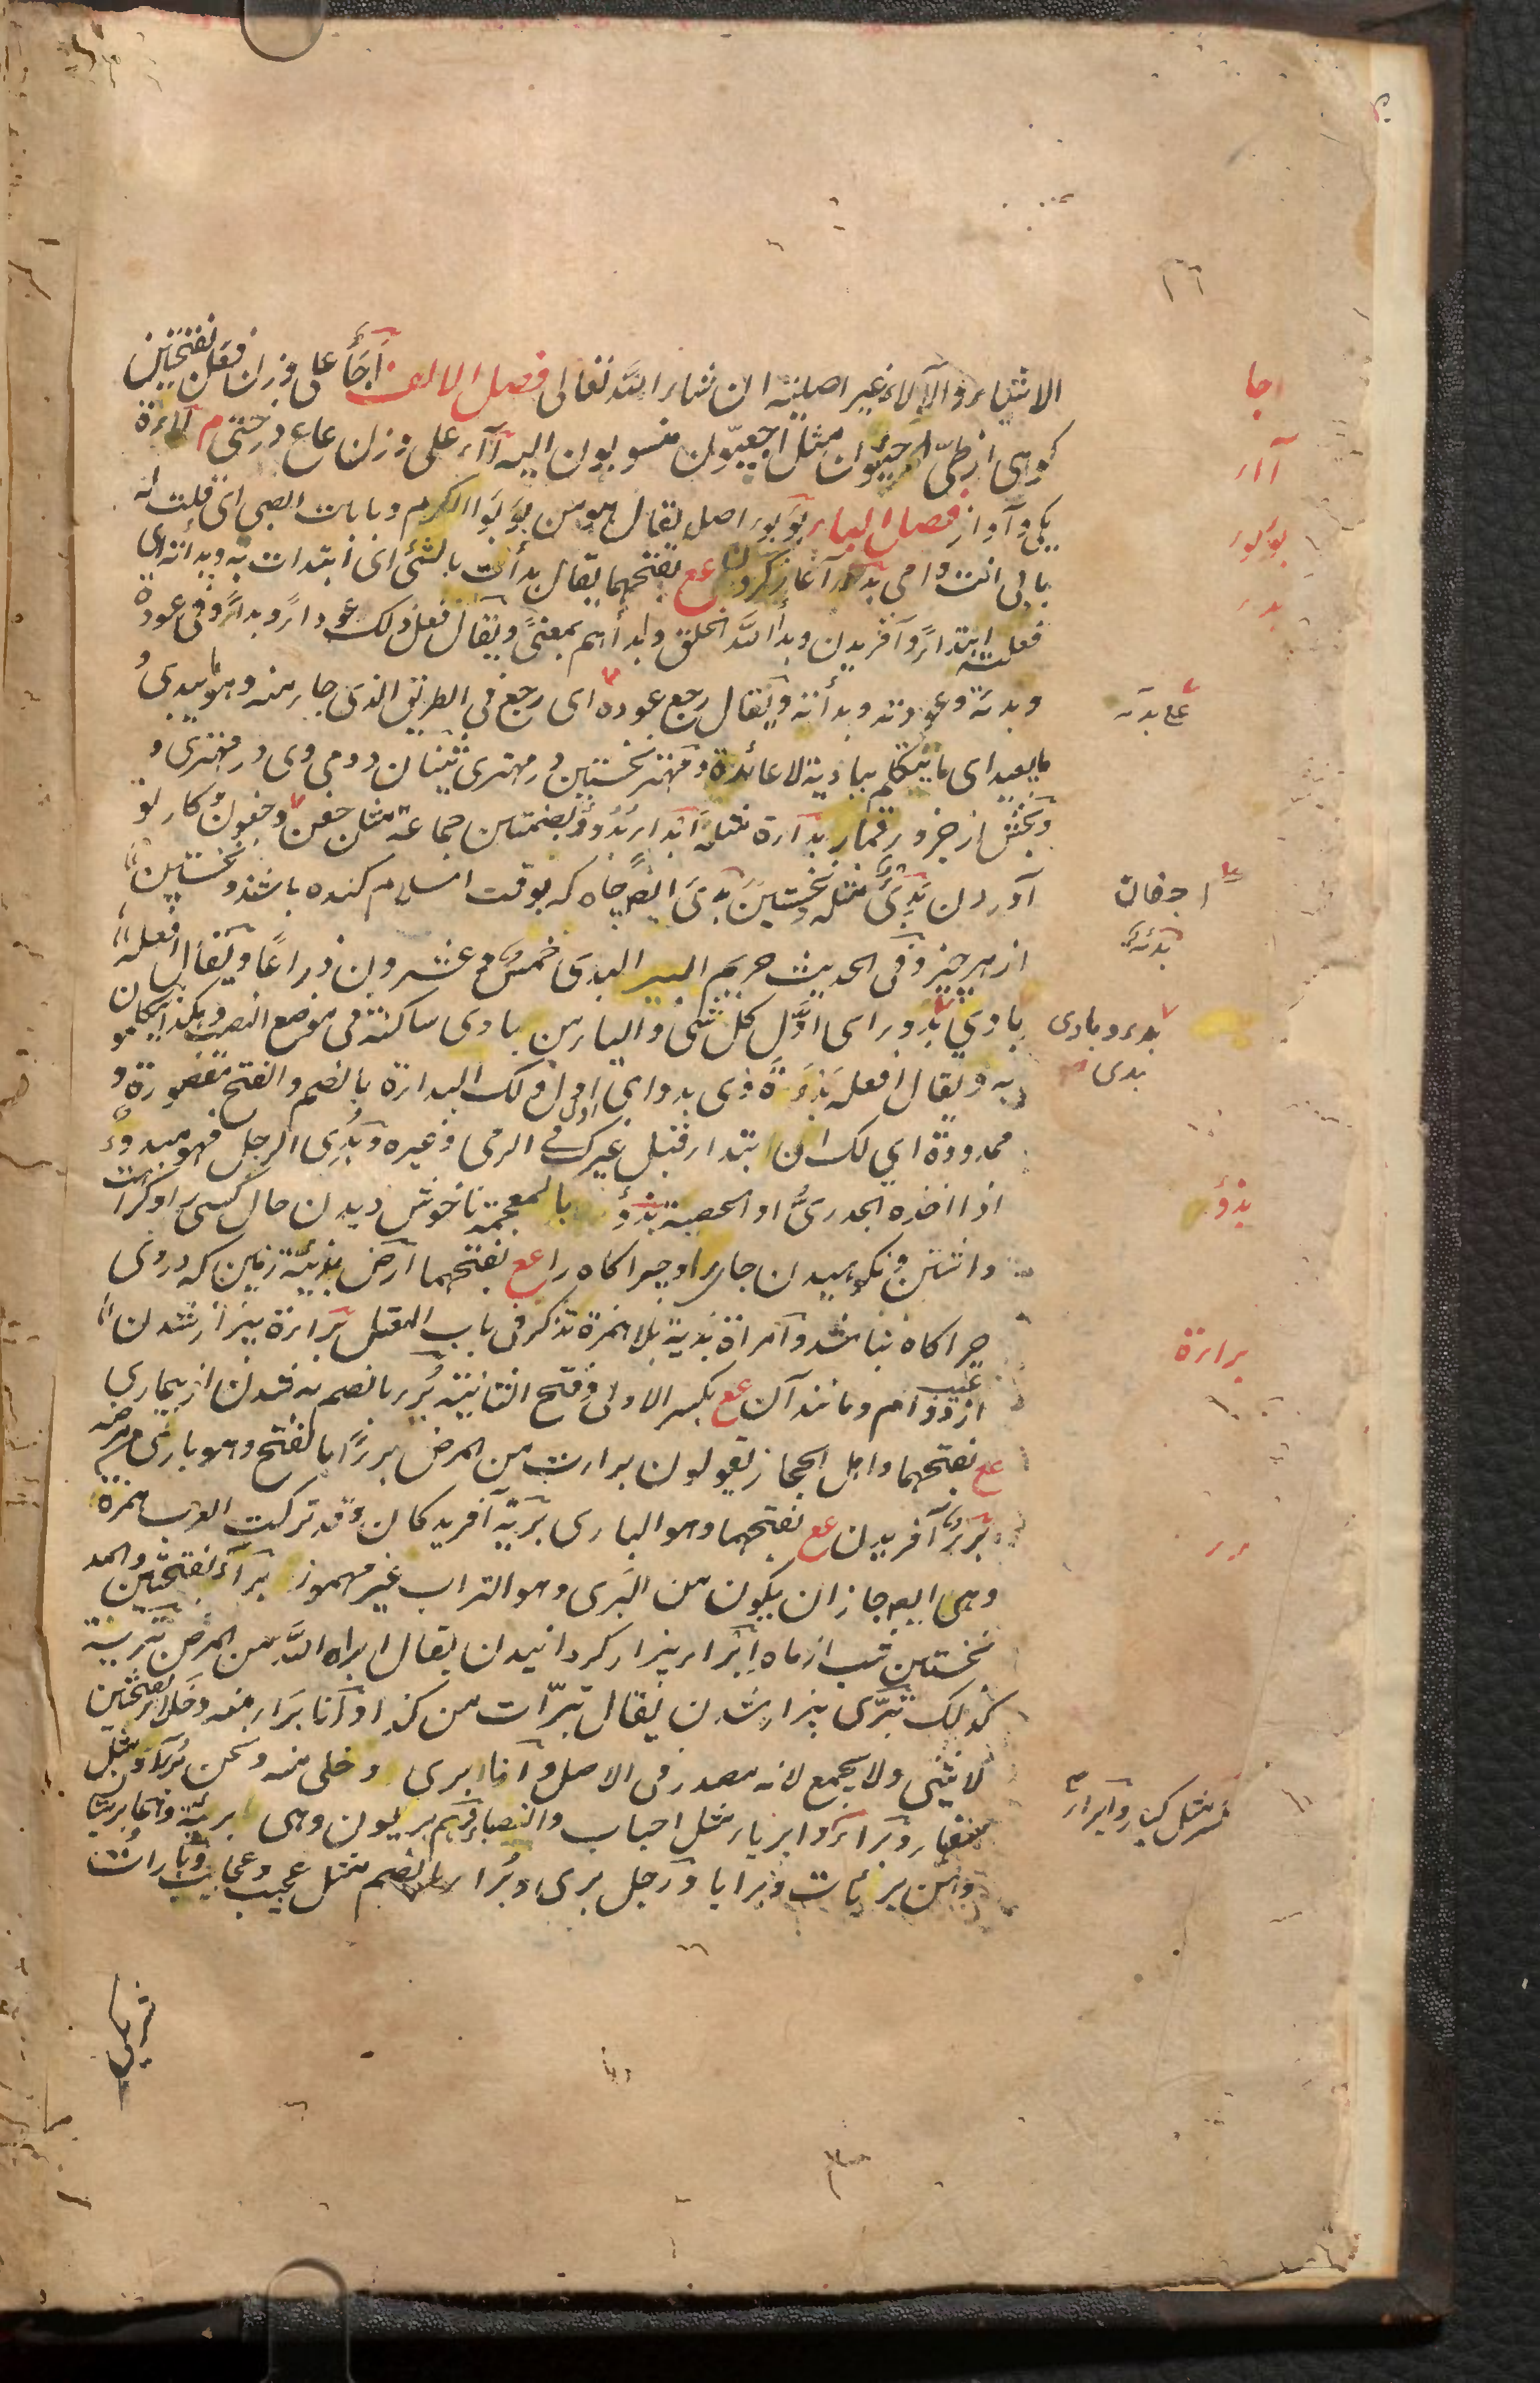 الاشیاء والآلاء غیر اصلیة ان شاء الله تعالی فصل الالف اَجَأ علی وزن فعل بفتحتین
کوهی از طیّ اجئیّون مثل اجعیّون منسوبون الیه آآء علی وزن عاع درختی م آاءة
یکی و آواز فصل الباء بؤبؤ اصل یقال هو من بؤبؤ الکرم و بابات الصبی ای قلت له
بابی انت و امی بدء آغاز کردن عع بفتحهما یقال بدأت بالشئ ای ابتدات به وبدأته ای
فعلته ابتداءً و آفریدن وبدأ الله الخلق وابدأهم بمعنیً ویقال فعل ذلک عوداً وبداءً وفی عوده
وبدئه وعودته وبدأته ویقال رجع عوده ای رجع فی الطریق الذی جاء منه وهو ما یبدئ و
ما یعید ای ما یتکلم ببادیة لا عائدة و مهتر نخستین در مهتری ثنیان دومی وی در مهتری و
وبخش از جزور قمار بدأة مثله ابداء بُدُوء بضمتین جماعة مثل جفن وجفون کار نو
آوردن بَدِیّ مثله ونخستین بدئ ایضا چاه که بوقت اسلام کنده باشند ونخستین
از هر چیز وفی الحدیث حریم البیر البدی خمس وعشرون ذراعا ویقال افعله
بادی بدء ای اوّل کل شئ والیاء من بادی ساکنة فی موضع النصب هکذا یتکلمون
به ویقال افعله بَدْءَةً ذی بدء ای اول اول لک البداءة بالضم والفتح مقصورة و
ممدودة ای لک ان ابتداء قبل غیرک فی الرمی وغیره وبُدِئ الرجل فهو مبدوء
اذا اخذه الجدریّ او الحصبة بَذْؤ بالمعجمة ناخوش دیدن حال کسی را و کراهت
داشتن ونکوهیدن جای را و چراکاه را عع بفتحهما ارض بذیئة زمین که دروی
چراکاه نباشد وامراة بذیة بلا همزة تذکر فی باب المعتل براءة بیزار شدن
از عیب و وام و مانند آن عع بکسر الاولی وفتح الثانیة بُرء بالضم به شدن از بیماری
عع بفتحهما واهل الحجاز یقولون برات من المرض برءاً بالفتح وهو باری من مرضه
بَرء آفریدن عع بفتحهما وهو الباری بریّة آفریدگان وقد ترکت العرب همزه
وهی ایض جاز ان یکون من البَری وهو التراب غیر مهموز براء بفتحتین والمد
نخستین شب از ماه ابراء بیزار کردانیدن یقال ابراه الله من المرض تبریة
کذلک تبرّی بیزار شدن یقال تبرّات من کذا وانا بَراء منه وخلاء بفتحتین
لا یثنی ولا یجمع لانه مصدر فی الاصل وانا بری وخلی منه ونحن بُرآء مثل
فقهاء وبراء وابریاء مثل احباب وانصباء وهم بریئون وهی بریّة وهما بریتان
وهن بریّات وبرایا ورجل بری وبُراء بالضم مثل عجیب وعجاب وبارأت
اجا
آاء
بؤبؤ
بدء
عع بدئه
اجفان
بدئة
بدء وبادی
بدی
بذؤ
براءة
برء
مثل کبار وابراء
شریکی